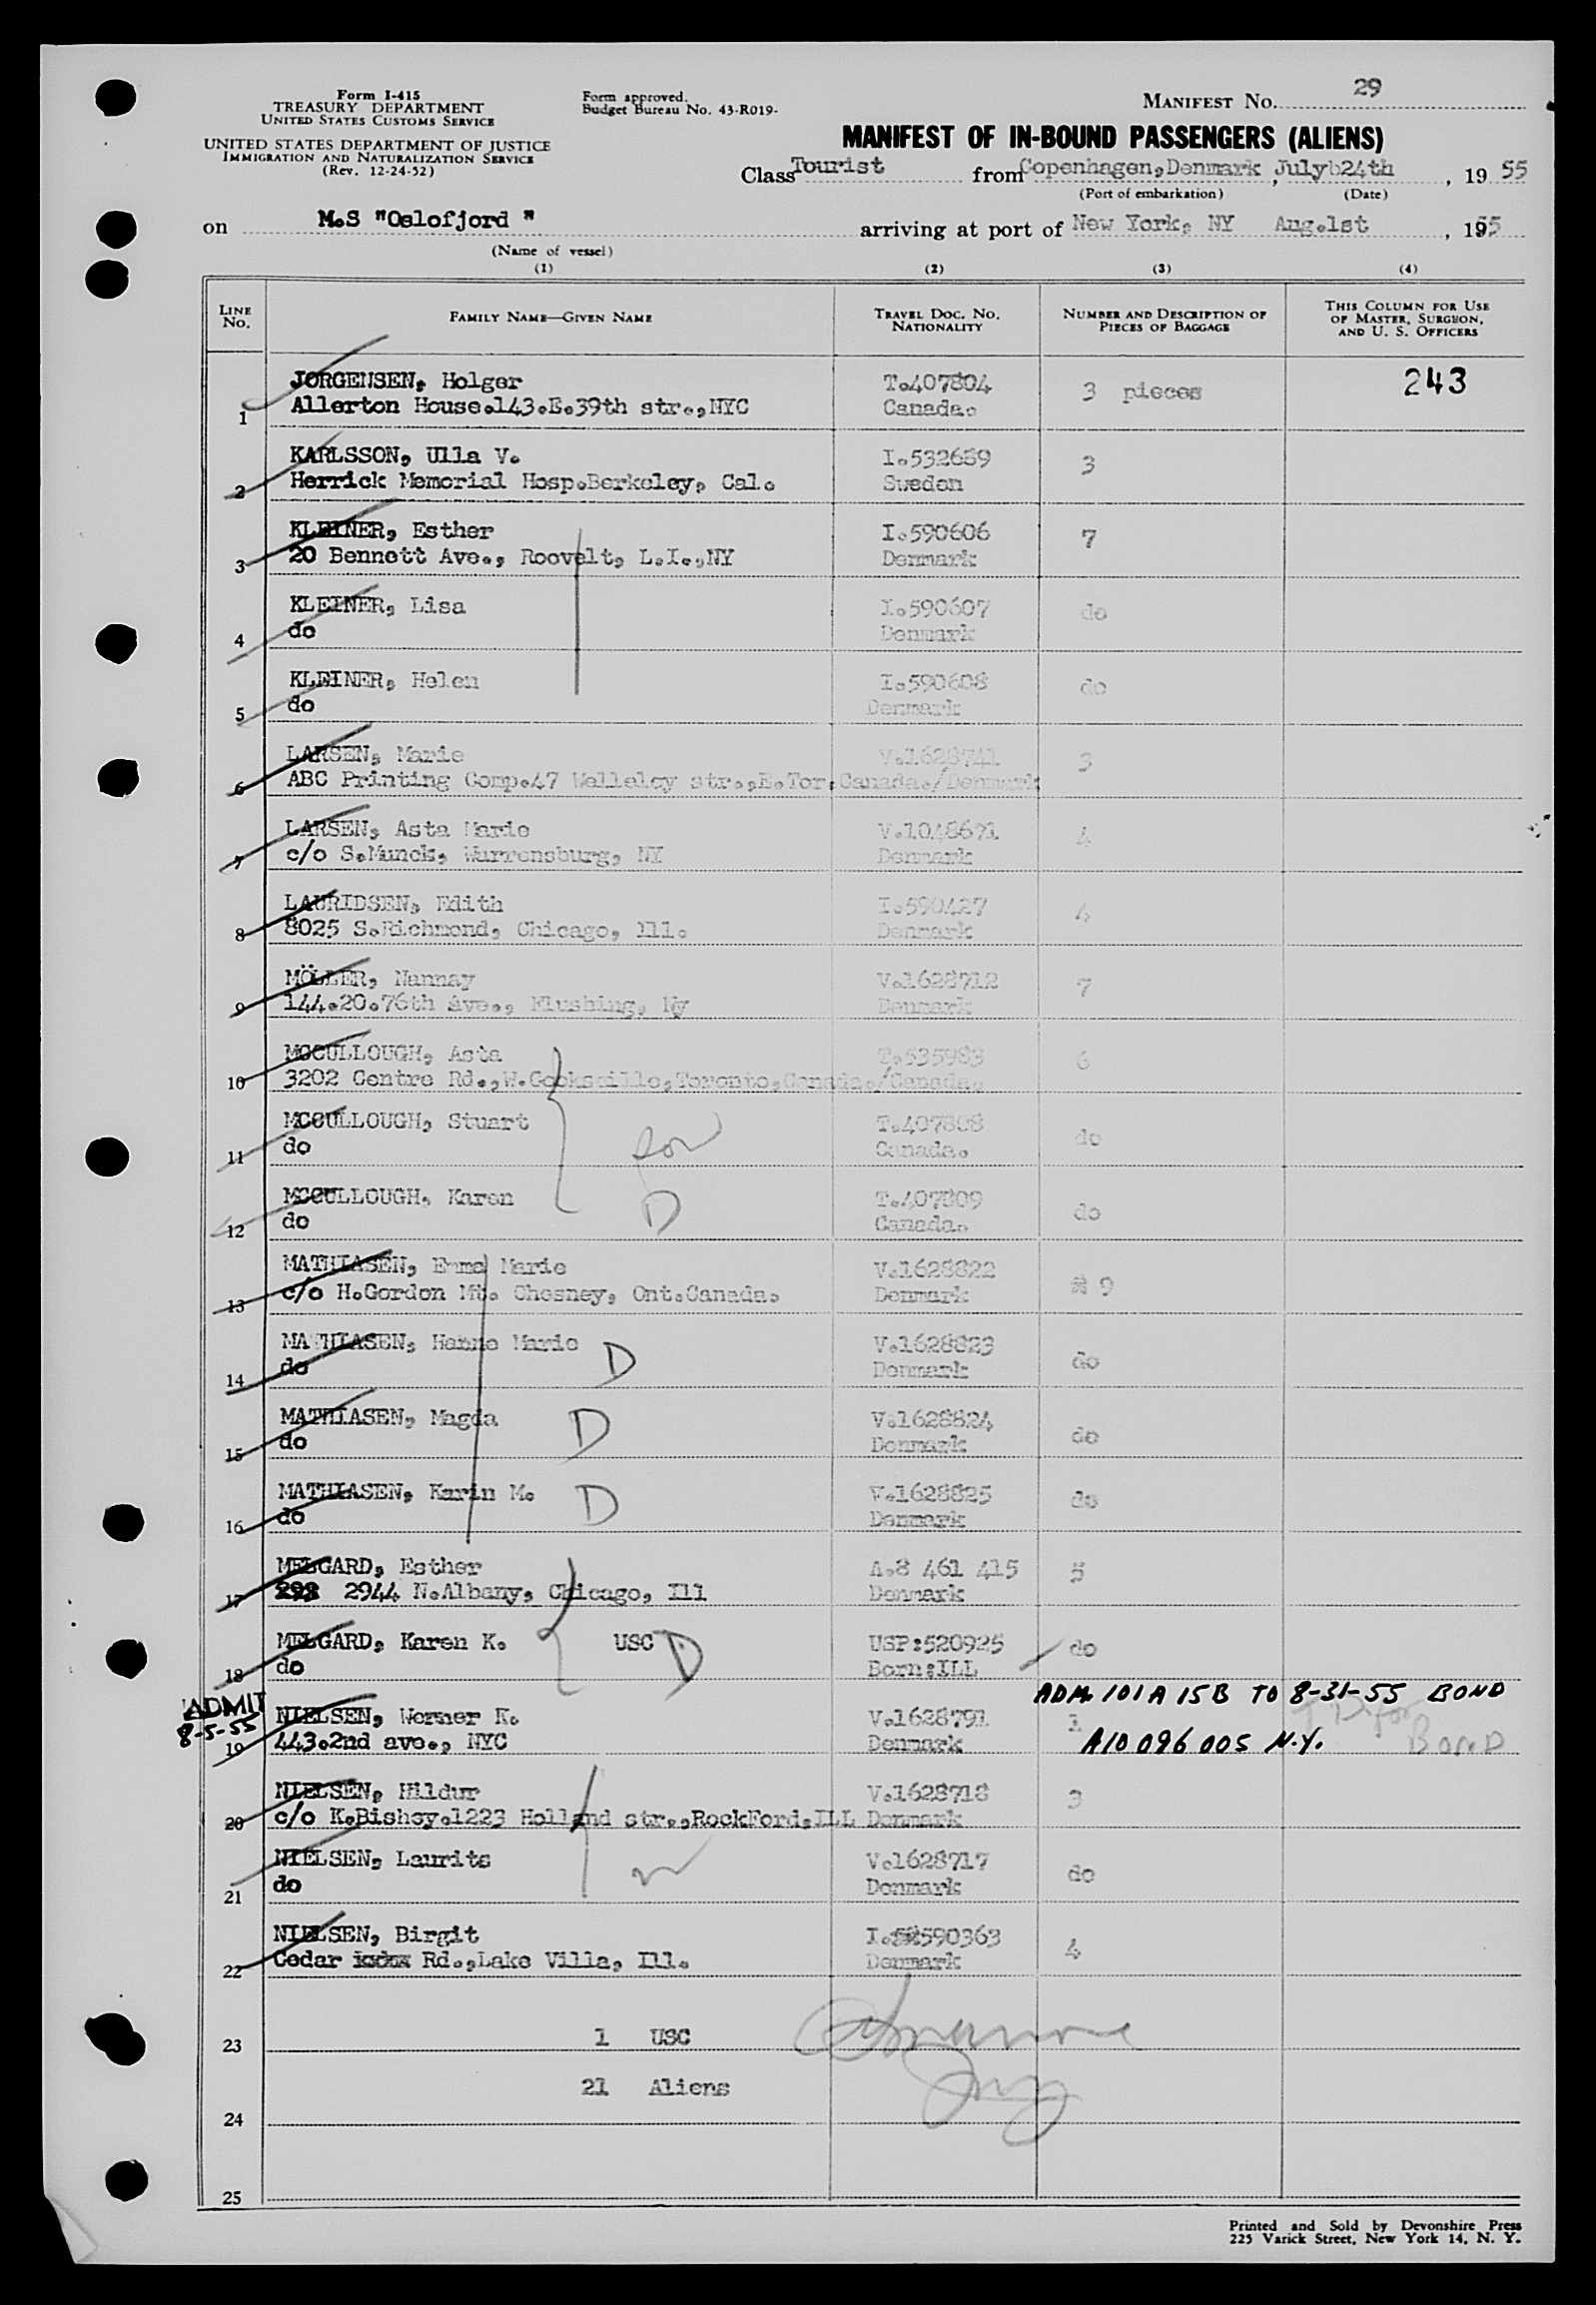 Form I-415
TREASURY DEPARTMENT
UNITED STATES CUSTOMS SERVICE
UNITED STATES DEPARTMENT OF JUSTICE
IMMIGRATION AND NATURALIZATION SERVICE
(Rev. 12-24-52)
Form approved.
Budget Bureau No. 43-R019-
MANIFEST No. 29
MANIFEST OF IN-BOUND PASSENGERS (ALIENS)
Class Tourist from Copenhagen,Denmark , July 24th , 19 55
(Port of embarkation) (Date)
on M.S "Oslofjord " arriving at port of New York, NY Aug.1st , 1955
(Name of vessel)
(1) (2) (3) (4)
LINE No. FAMILY NAME—GIVEN NAME TRAVEL DOC. No. NATIONALITY NUMBER AND DESCRIPTION OF PIECES OF BAGGAGE THIS COLUMN FOR USE OF MASTER, SURGEON, AND U. S. OFFICERS
JORGENSEN, Holger T.407804 3 pieces 243
1 Allerton House.143.E.39th str.,NYC Canada.
KARLSSON, Ulla V. I.532659 3
2 Herrick Memorial Hosp.Berkeley, Cal. Sweden
KLEINER, Esther I.590606 7
3 20 Bennett Ave., Roovelt, L.I.,NY Denmark
KLEINER, Lisa I.590607 do
4 do Denmark
KLEINER, Helen I.590608 do
5 do Denmark
LARSEN, Marie V.1628741 3
6 ABC Printing Comp.47 Welleley str.,E.Tor.Canada./Denmark
LARSEN, Asta Marie V.1048671 4
7 c/o S.Munck, Warrensburg, NY Denmark
LAURIDSEN, Edith I.590427 4
8 8025 S.Richmond, Chicago, Ill. Denmark
MÖLLER, Nannay V.1628712 7
9 144.20.76th Ave., Flushing, Ny Denmark
MCCULLOUGH, Asta T.535983 6
10 3202 Centre Rd.,W.Cooksville,Toronto,Canada./Canada.
MCCULLOUGH, Stuart T.407808 do
11 do Canada.
MCCULLOUGH, Karen D T.407809 do
12 do Canada.
MATHIASEN, Emma Marie V.1628822 9
13 c/o H.Gordon Mt. Chesney, Ont.Canada. Denmark
MATHIASEN, Hanne Marie D V.1628823 do
14 do Denmark
MATHIASEN, Magda D V.1628824 do
15 do Denmark
MATHIASEN, Karin M. D V.1628825 do
16 do Denmark
MELGARD, Esther A.8 461 415 5
17 2944 N.Albany, Chicago, Ill Denmark
MELGARD, Karen K. USC D USP:520925 do
18 do Born:ILL
ADMIT ADM. 101A 15B TO 8-31-55 BOND
8-5-55 NIELSEN, Werner K. V.1628791 1
19 443.2nd ave., NYC Denmark A10 096 005 N.Y. BOND
NIELSEN, Hildur V.1628718 3
20 c/o K.Bishoy.1223 Holland str.,RockFord,ILL Denmark
NIELSEN, Laurits V.1628717 do
21 do Denmark
NIELSEN, Birgit I.590363 4
22 Cedar Rd.,Lake Villa, Ill. Denmark
23 1 USC
21 Aliens
24
25
Printed and Sold by Devonshire Press
225 Varick Street, New York 14, N. Y.